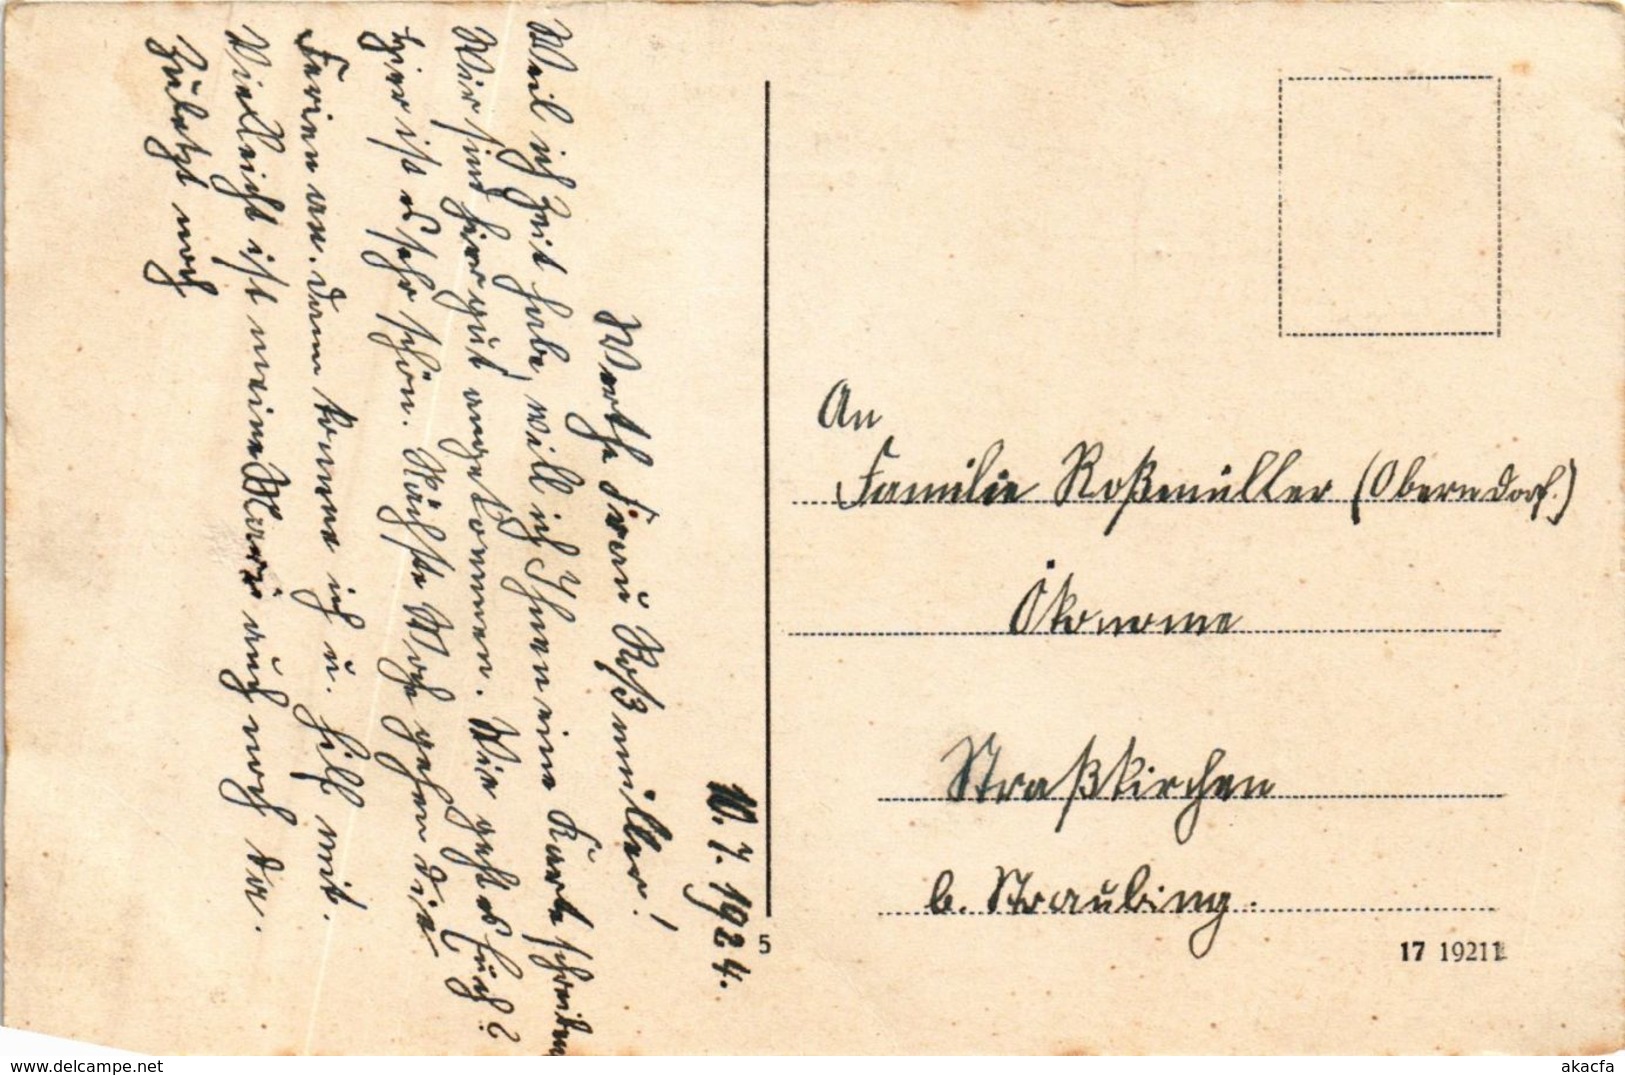 10.7.1924.
Werthe Frau Roßmüller!
Weil ich Zeit habe, will ich Ihnen eine Karte schreiben
Wir sind hier gut angekommen. Wie geht es Euch?
Hier ist es sehr schön. Nächste Woche gehen die
Ferien an. Dann komme ich u. hilf mit.
Vielleicht ist meine Mari auch noch da.
Zuletzt noch
An
Familie Roßmüller (Oberndorf.)
Ökonome
Straßkirchen
b. Straubing.
5
17 19211
www.delcampe.net
akacfa